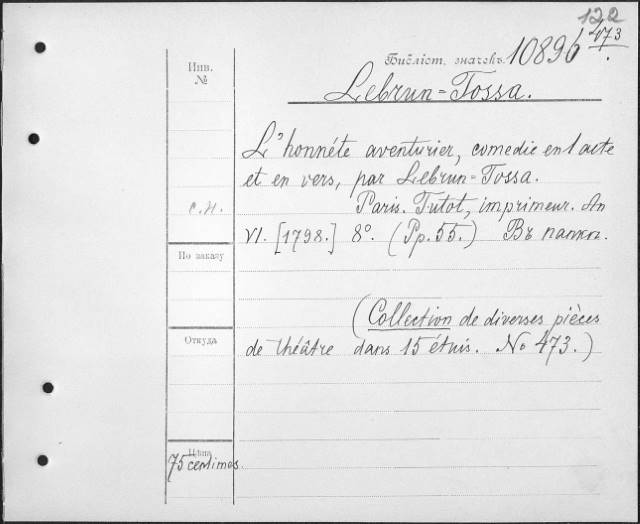 122
Инв.
№
Библіот. значекъ 10896 473
Lebrun=Tossa.
L'honnéte aventurier, comedie en 1 acte
et en vers, par Lebrun=Tossa.
с.н. Paris. Tutot, imprimeur. An
VI. [1798.] 8º. (Pp. 55.) Въ папкѣ.
По заказу
(Collection de diverses pièces
Откуда
de théâtre dans 15 étuis. No 473.)
Цѣна
75 centimes.